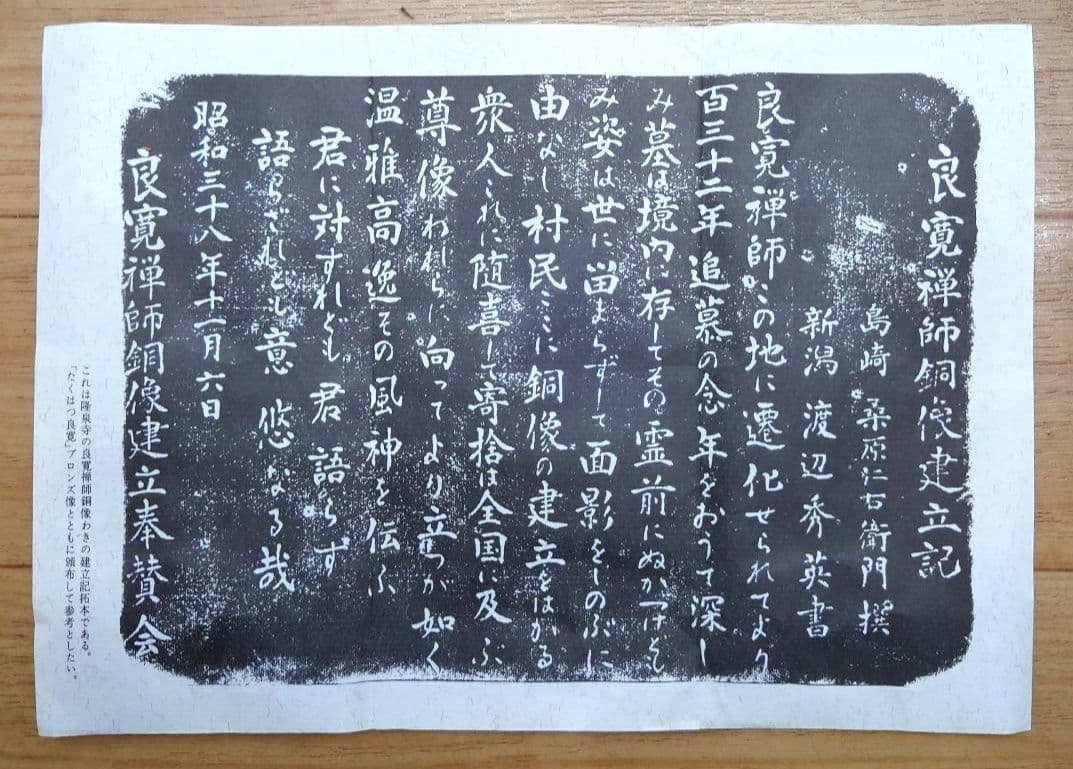 良寛禅師銅像建立記
島崎 桑原仁右衛門撰
新潟 渡辺秀英書
良寛禅師この地に遷化せられてより
百三十二年追慕の念年をおうて深し
み墓は境内に存してその霊前にぬかつけとも
み姿は世に留まらずして面影をしのぶに
由なし村民ここに銅像の建立をはかる
衆人これに随喜して寄捨は全国に及ぶ
尊像われらに向ってより立つが如く
温雅高逸その風神を伝ふ
君に対すれども君語らず
語らざれども意悠なる哉
昭和三十八年十一月六日
良寛禅師銅像建立奉賛会
これは隆泉寺の良寛禅師銅像わきの建立記拓本である。
「たくはつ良寛」ブロンズ像とともに頒布して参考としたい。